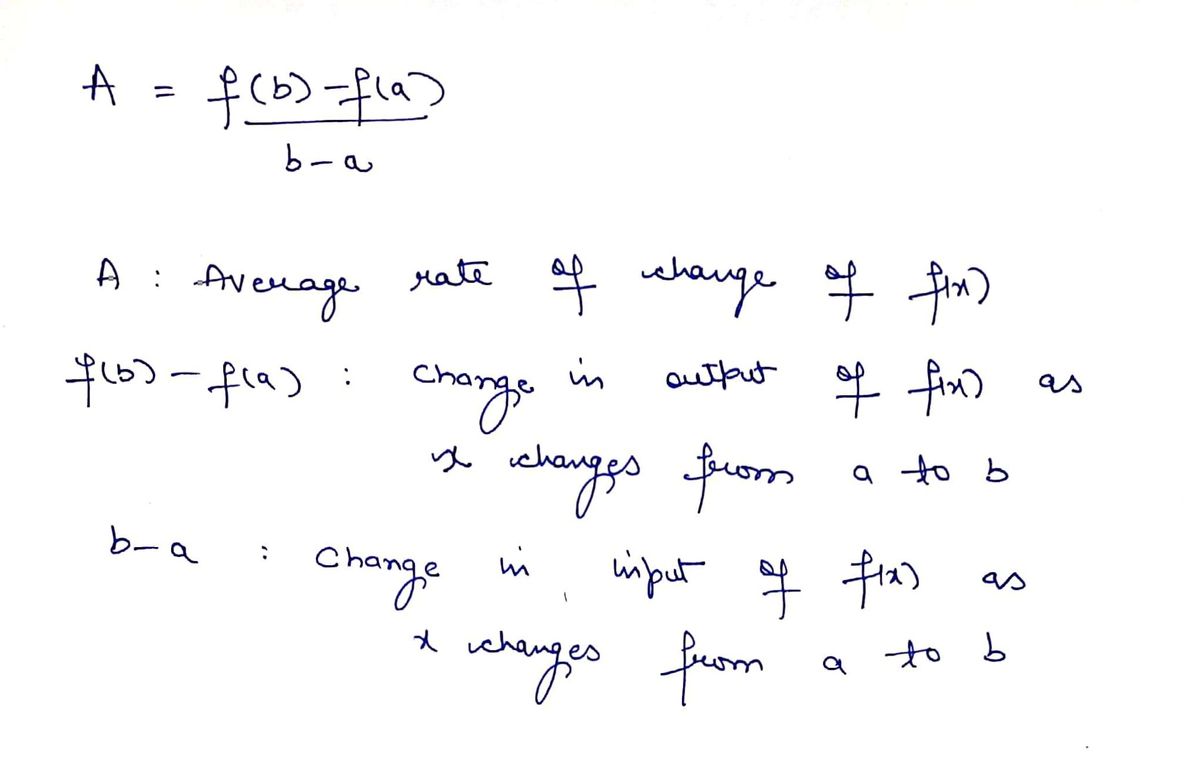 A = f(b) - f(a)
b - a
A : Average rate of change of f(x)
f(b) - f(a) : Change in output of f(x) as
x changes from a to b
b - a : Change in input of f(x) as
x changes from a to b